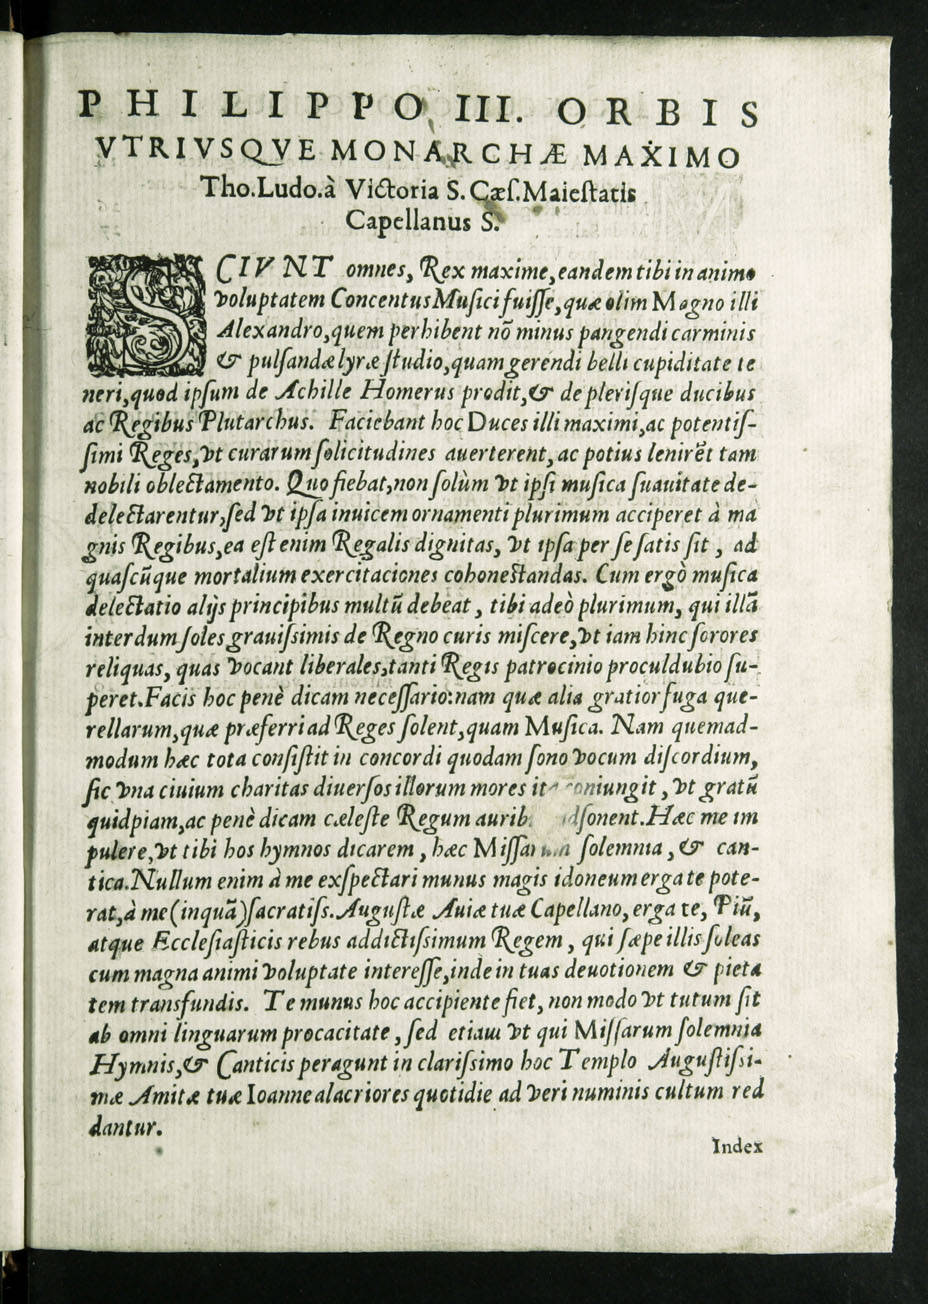 PHILIPPO III. ORBIS
VTRIVSQVE MONARCHÆ MAXIMO
Tho.Ludo.à Victoria S. Cæſ.Maieſtatis
Capellanus S.
SCIVNT omnes, Rex maxime, eandem tibi in animo
voluptatem Concentus Muſici fuiſſe, quæ olim Magno illi
Alexandro, quem perhibent nõ minus pangendi carminis
& pulſandæ lyræ ſtudio, quam gerendi belli cupiditate te
neri, quod ipſum de Achille Homerus prodit, & de pleriſque ducibus
ac Regibus Plutarchus. Faciebant hoc Duces illi maximi, ac potentiſ-
ſimi Reges, vt curarum ſolicitudines auerterent, ac potius lenirẽt tam
nobili oblectamento. Quo fiebat, non ſolùm vt ipſi muſica ſuauitate de-
delectarentur, ſed vt ipſa inuicem ornamenti plurimum acciperet à ma
gnis Regibus, ea eſt enim Regalis dignitas, vt ipſa per ſe ſatis ſit, ad
quaſcũque mortalium exercitaciones coboneſtandas. Cum ergò muſica
delectatio alijs principibus multũ debeat, tibi adeò plurimum, qui illã
interdum ſoles grauiſsimis de Regno curis miſcere, vt iam hinc ſorores
reliquas, quas vocant liberales, tanti Regis patrocinio proculdubio ſu-
peret. Facis hoc penè dicam neceſſario: nam quæ alia gratior fuga que-
rellarum, quæ præferri ad Reges ſolent, quam Muſica. Nam quemad-
modum hæc tota conſiſtit in concordi quodam ſono vocum diſcordium,
ſic vna ciuium charitas diuerſos illorum mores it coniungit, vt gratũ
quidpiam, ac penè dicam cæleſte Regum aurib dſonent. Hæc me im
pulere, vt tibi hos hymnos dicarem, hæc Miſſarum ſolemnia, & can-
tica. Nullum enim à me exſpectari munus magis idoneum erga te pote-
rat, à me (inquã) ſacratiſs. Auguſtæ Auiæ tuæ Capellano, erga te, Piũ,
atque Eccleſiaſticis rebus addictiſsimum Regem, qui ſæpe illis ſoleas
cum magna animi voluptate intereſſe, inde in tuas deuotionem & pieta
tem transfundis. Te munus hoc accipiente fiet, non modo vt tutum ſit
ab omni linguarum procacitate, ſed etiam vt qui Miſſarum ſolemnia
Hymnis, & Canticis peragunt in clariſsimo hoc Templo Auguſtiſsi-
mæ Amitæ tuæ Ioanne alacriores quotidie ad veri numinis cultum red
dantur.
Index